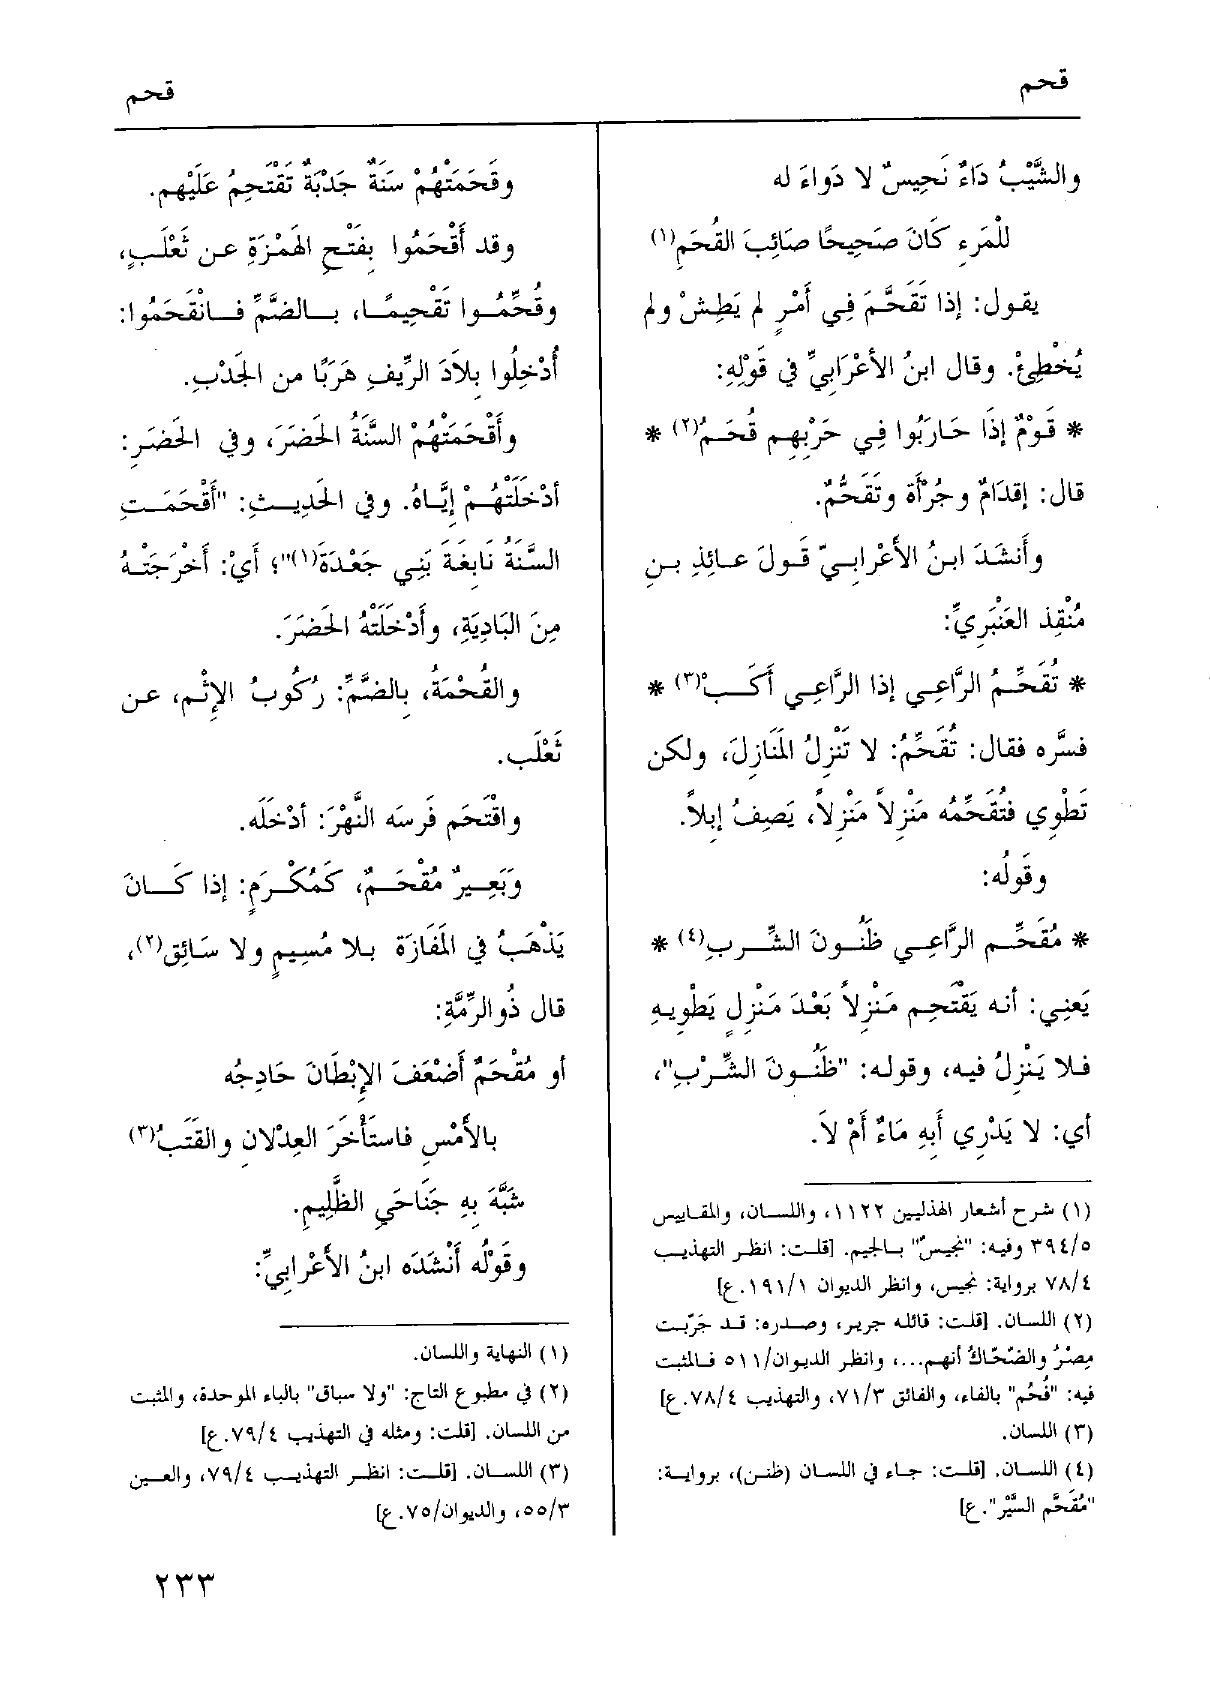 قحم
قحم
والشَّيْبُ دَاءٌ نَحِيسٌ لا دَواءَ له
للْمَرءِ كَانَ صَحِيحًا صَائِبَ القُحَمِ(١)
يقول: إذا تَقَحَّمَ فِي أَمْرٍ لم يَطِشْ ولم
يُخْطِئْ. وقال ابنُ الأعْرَابيِّ في قَوْلِهِ:
* قَوْمٌ إذَا حَارَبُوا فِي حَرْبِهِم قُحَمُ(٢) *
قال: إقدَامٌ وجُرْأَة وتَقَحُّمٌ.
وأَنشَدَ ابنُ الأَعْرابيّ قَولَ عائِذِ بنِ
مُنْقِذ العَنْبَرِيِّ:
* تُقَحِّمُ الرَّاعِي إذا الرَّاعِي أَكَبْ(٣) *
فسَّره فقال: تُقَحِّمُ: لا تَنْزِلُ المَنَازِلَ، ولكن
تَطْوِي فتُقَحِّمُه مَنْزِلاً مَنْزِلاً، يَصِفُ إبلاً.
وقَولُه:
* مُقَحِّم الرَّاعِي ظَنُونَ الشِّربِ(٤) *
يَعنِي: أنه يَقْتَحِم مَنْزِلاً بَعْدَ مَنْزِلٍ يَطْوِيهِ
فلا يَنْزِلُ فيه، وقوله: "ظَنُونَ الشِّرْبِ"،
أي: لا يَدْرِي أَبِهِ مَاءٌ أَمْ لاَ.
(١) شرح أشعار الهذليين ١١٢٢، واللسان، والمقاييس
٣٩٤/٥ وفيه: "نجيسٌ" بالجيم. [قلت: انظر التهذيب
٧٨/٤ برواية: نجيس، وانظر الديوان ١٩١/١.ع]
(٢) اللسان. [قلت: قائله جرير، وصدره: قد جَرّبت
مِصْرُ والضّحّاكُ أنهم...، وانظر الديوان/٥١١ فالمثبت
فيه: "فُحُم" بالفاء، والفائق ٧١/٣، والتهذيب ٧٨/٤.ع]
(٣) اللسان.
(٤) اللسان. [قلت: جاء في اللسان (ظنن)، برواية:
"مُقَحَّم السَّيْر".ع]
وقَحَمَتْهُمْ سَنَةٌ جَدْبَةٌ تَقْتَحِمُ عَلَيْهم.
وقد أَقْحَمُوا بِفَتْحِ الهَمْزَةِ عن ثَعْلَبٍ،
وقُحِّمُوا تَقْحِيمًا، بالضَّمِّ فانْقَحَمُوا:
أُدْخِلُوا بِلاَدَ الرِّيفِ هَرَبًا من الجَدْبِ.
وأَقْحَمَتْهُمْ السَّنَةُ الحَضَرَ، وفي الحَضَرِ:
أدْخَلَتْهُمْ إيَّاهُ. وفي الحَدِيثِ: "أَقْحَمَتِ
السَّنَةُ نَابِغَةَ بَنِي جَعْدَةَ(١)"؛ أَيْ: أَخْرَجَتْهُ
مِنَ البَادِيَةِ، وأَدْخَلَتْهُ الحَضَرَ.
والقُحْمَةُ، بالضَّمِّ: رُكُوبُ الإِثْمِ، عن
ثَعْلَب.
واقْتَحَم فَرسَه النَّهْرَ: أدْخَلَه.
وبَعِيرٌ مُقْحَمٌ، كَمُكْرَمٍ: إذا كَانَ
يَذْهَبُ في المَفَازَة بلا مُسِيمٍ ولا سَائِق(٢)،
قال ذُوالرِّمَّةِ:
أو مُقْحَمٌ أَضْعَفَ الإبْطَانَ حَادِجُه
بالأَمْسِ فاستَأْخَرَ العِدْلانِ والقَتَبُ(٣)
شَبَّهَ بِهِ جَنَاحَيِ الظَّلِيمِ.
وقَوْلُه أَنْشَدَه ابنُ الأَعْرابيِّ:
(١) النهاية واللسان.
(٢) في مطبوع التاج: "ولا سباق" بالباء الموحدة، والمثبت
من اللسان. [قلت: ومثله في التهذيب ٧٩/٤.ع]
(٣) اللسان. [قلت: انظر التهذيب ٧٩/٤، والعين
٥٥/٣، والديوان/٧٥.ع]
٢٣٣